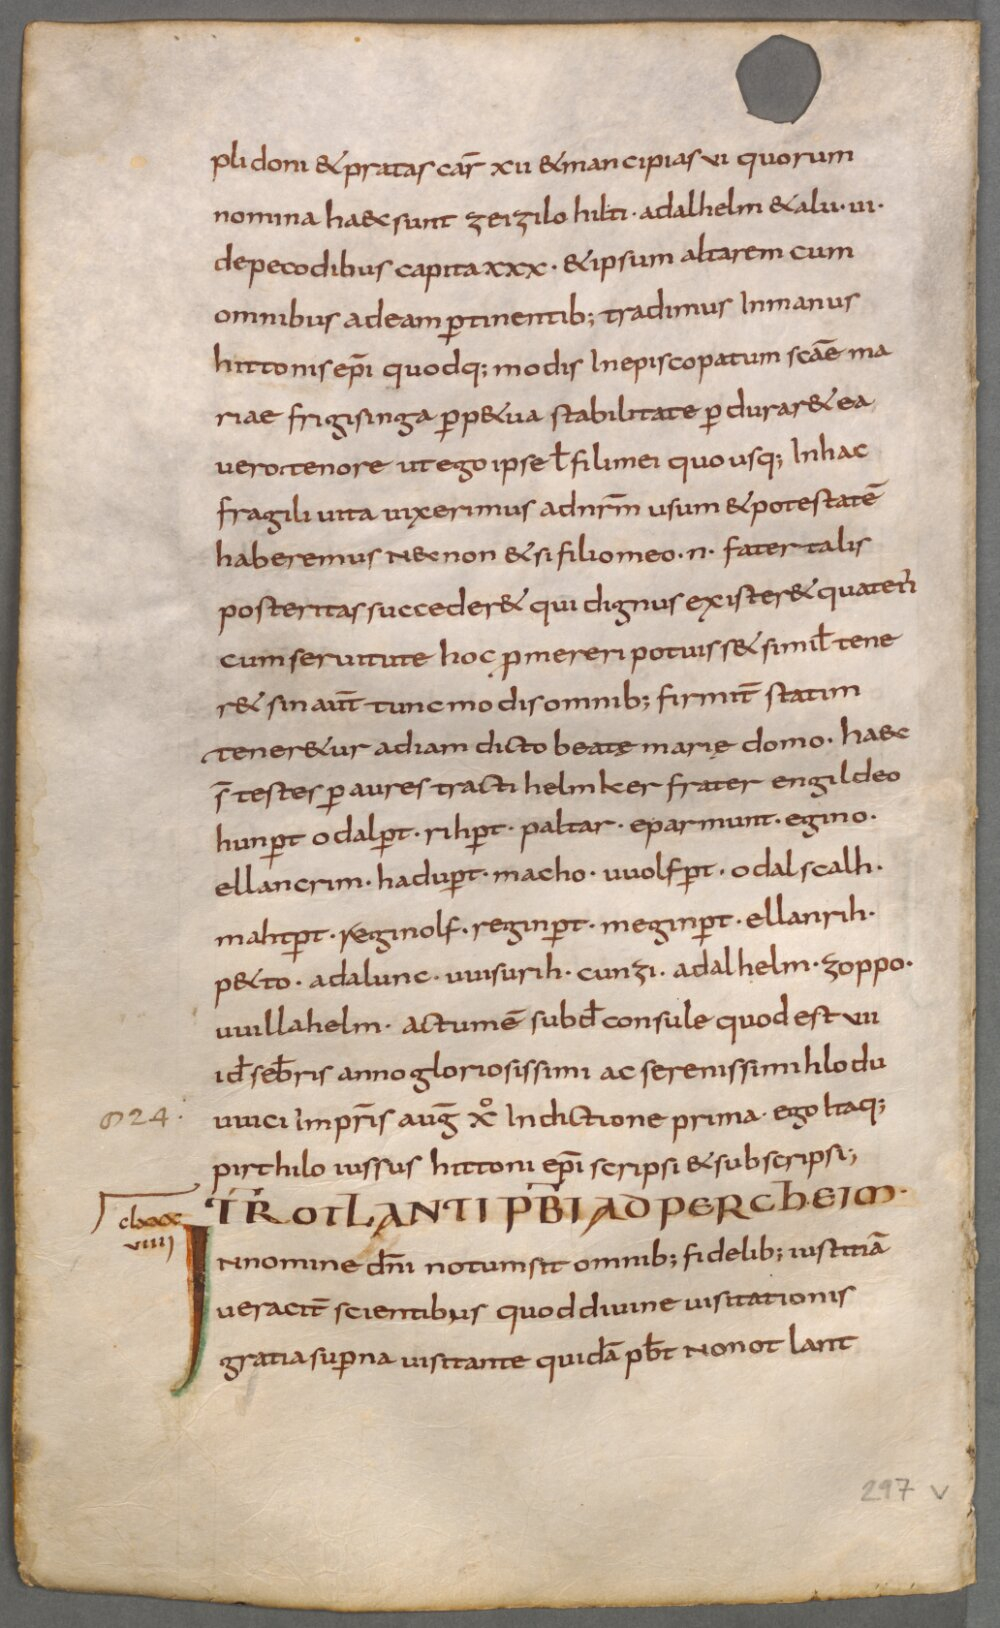 pli doni & pratas car̄ xii & mancipias vi quorum
nomina haec sunt zeizilo hilti · adalhelm & alii · iii ·
de pecodibus capita xxx · & ipsum altarem cum
omnibus ad eam p̲tinentib; tradimus In manus
hittonis ep̄i quodq; modis In episcopatum scāe ma
riae frigisinga p̲p&ua stabilitate p̲durar& ea
uero tenore ut ego ipse ł filii mei quo usq; In hac
fragili uita uixerimus ad nr̄m usum & potestatē
haberemus Nec non & si filio meo · n · fater talis
posteritas succeder& qui dignus exister& quaten̄
cum seruitute hoc p̲mereri potuiss& simił tene
r& sin aut̄ tunc modis omnib; firmit̄ statim
tener&ur ad iam dicto beatę marię domo · haec
s̄ testes p̲ aures tracti helmker frater engildeo
hunp̲t odalp̲t · rihp̲t · paltar · eparmunt · egino ·
ellancrim · hadup̲t · macho · uuolfp̲t · odalscalh ·
mahtp̲t · Reginolf · reginp̲t · meginp̲t · ellanrih ·
p&to · adalunc · uuisurih · cunzi · adalhelm · zoppo ·
uuillahelm · actum ē sub đ consule quod est vii
iđ seƀris anno gloriosissimi ac serenissimi hlodu
uuici Impr̄is auḡ x̊ Indictione prima · ego Itaq;
pirthilo iussus hittoni ep̄i scripsi & subscripsi;
824 ·
TR̄ OTLANTI PB̄I AD PERCHEIM ·
clxxx
viiii
IN nomine dn̄i notum sit omnib; fidelib; iustitiā
ueracit̄ scientibus quod diuine uisitationis
gratia sup̲na uisitante quidā pƀt Non otlant
297 v